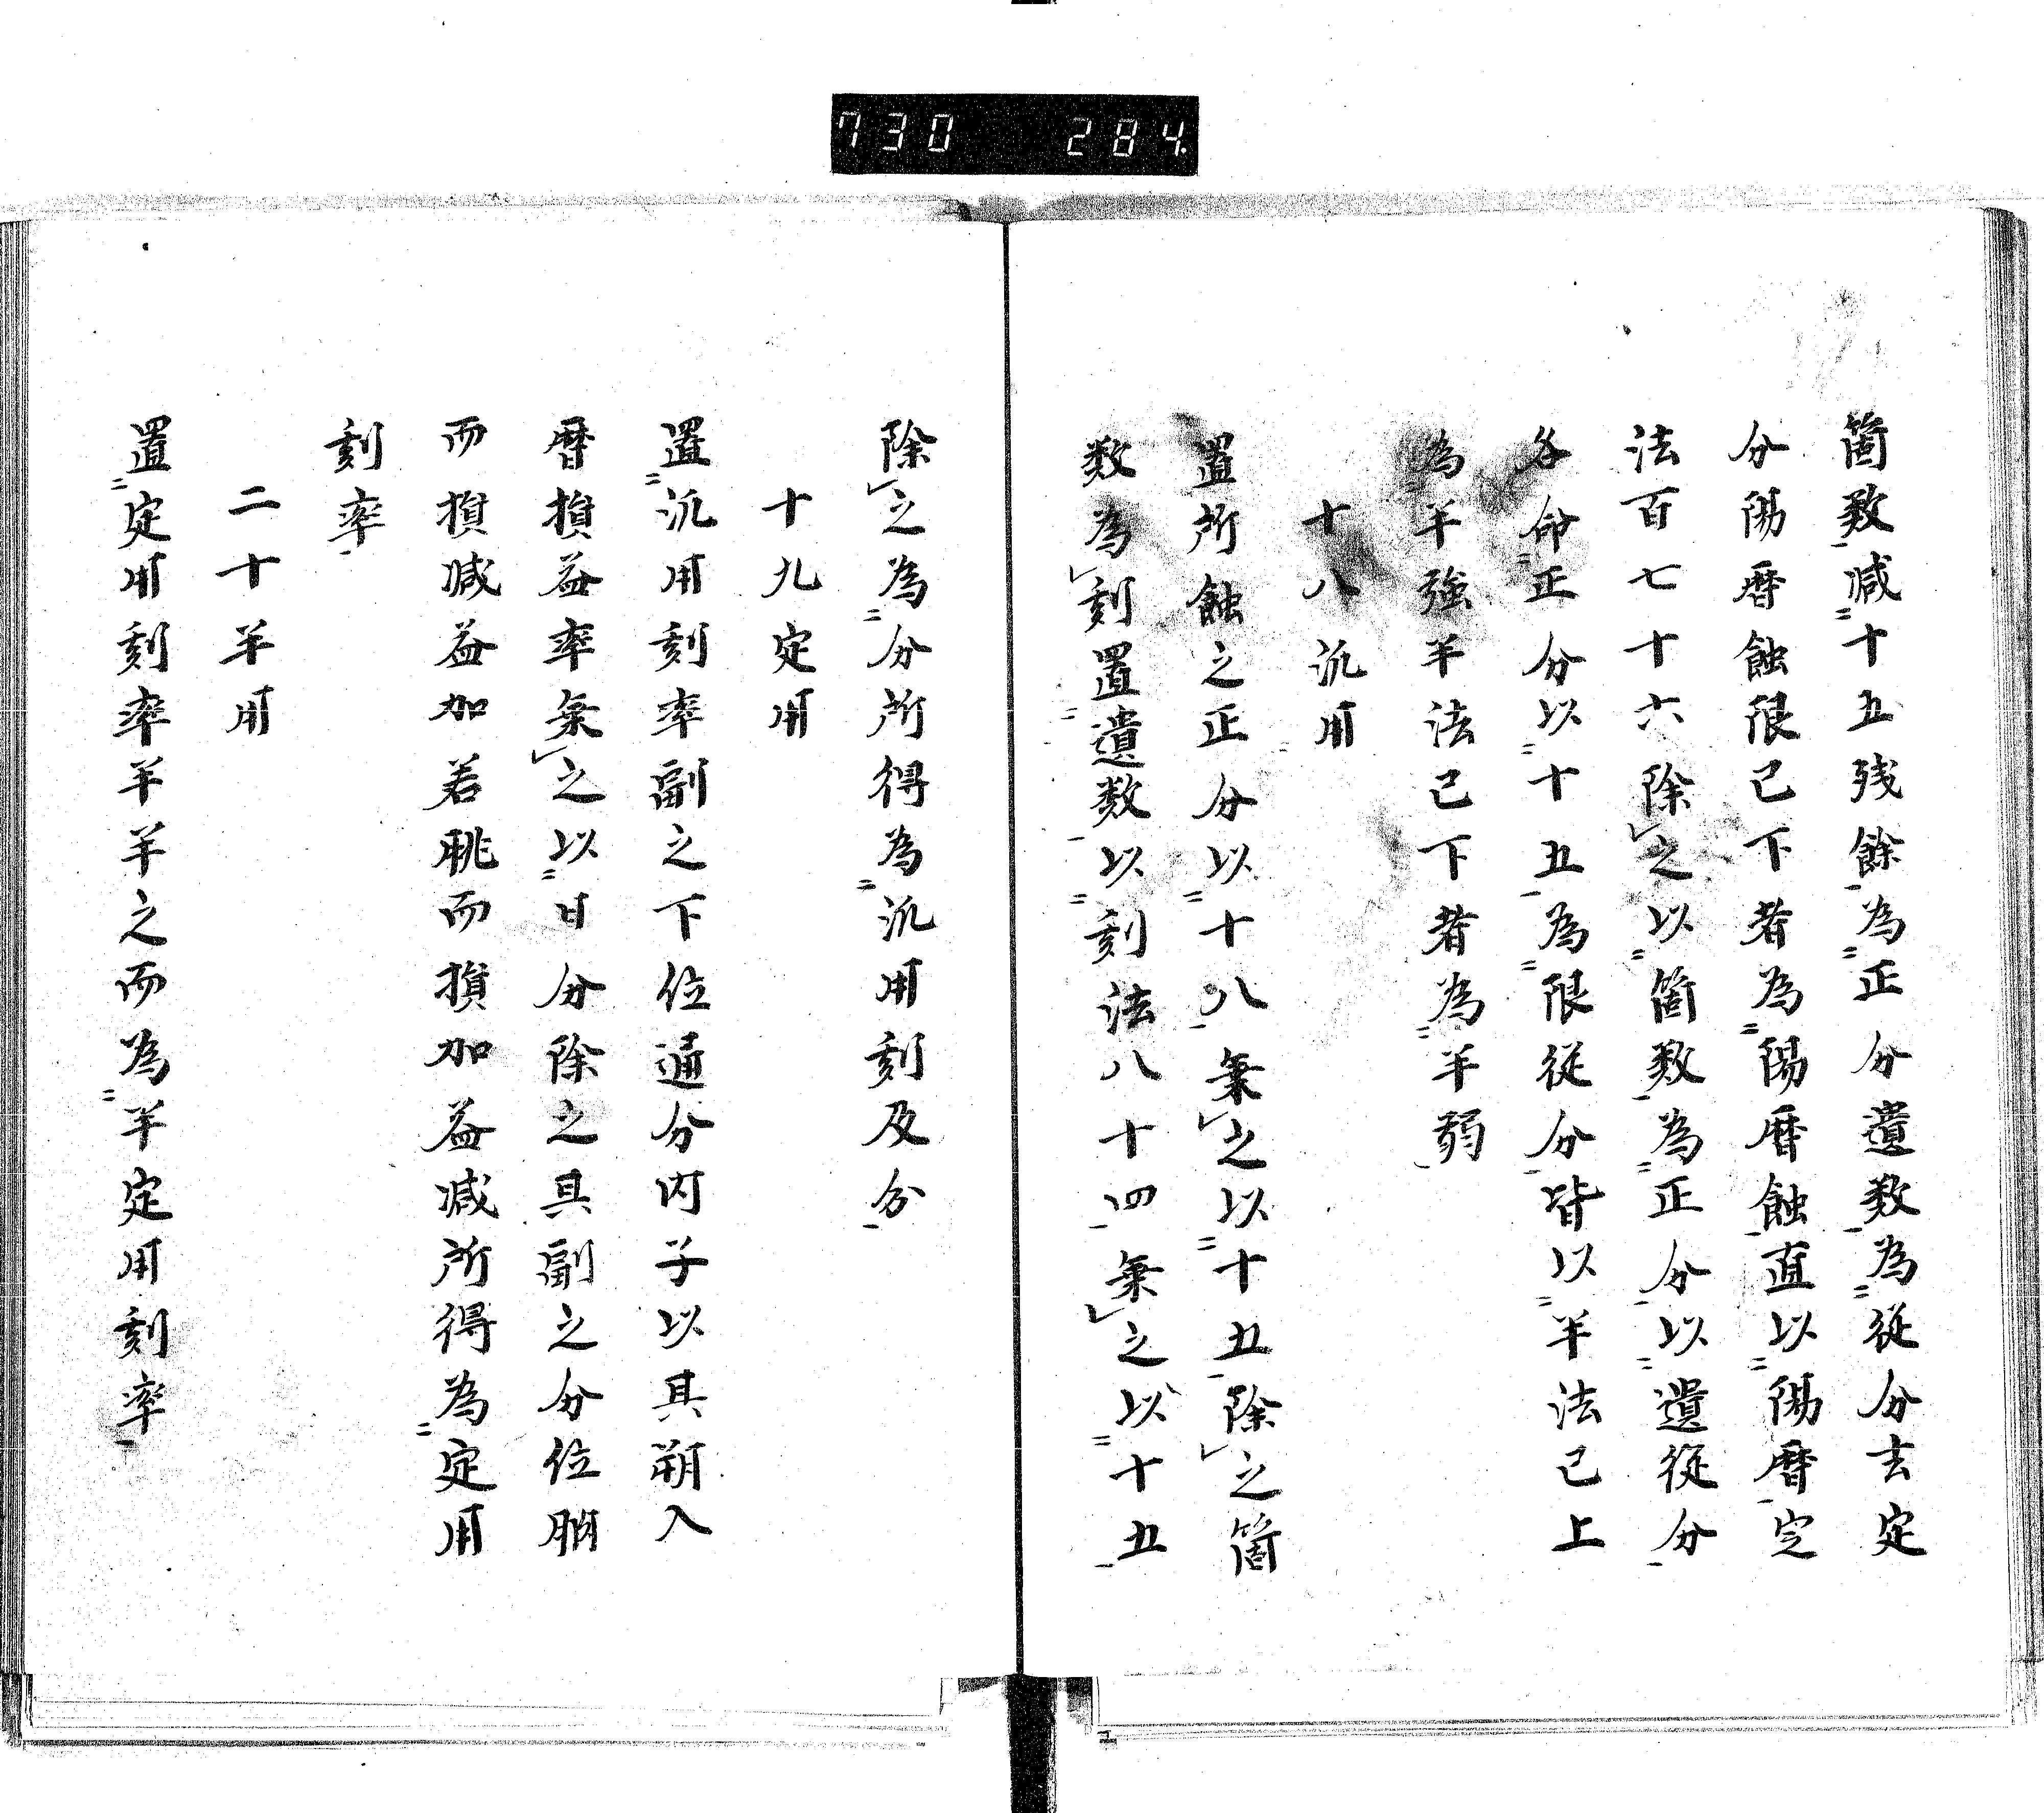 730 284
箇数減十五残餘為正分遺数為従分去定
分陽暦蝕限已下者為陽暦蝕直以陽暦定
法百七十六除之以箇数為正分以遺従分
各命正分以十五為限従分皆以半法已上
為半強半法已下者為半弱
十八汎用
置所蝕之正分以十八乗之以十五除之箇
数為刻置遺数以刻法八十四乗之以十五
除之為分所得為汎用刻及分
十九定用
置汎用刻率副之下位通分内子以其朔入
暦損益率乗之以日分除之其副之分位朒
而損減益加若朓而損加益減所得為定用
刻率
二十半用
置定用刻率半半之而為半定用刻率